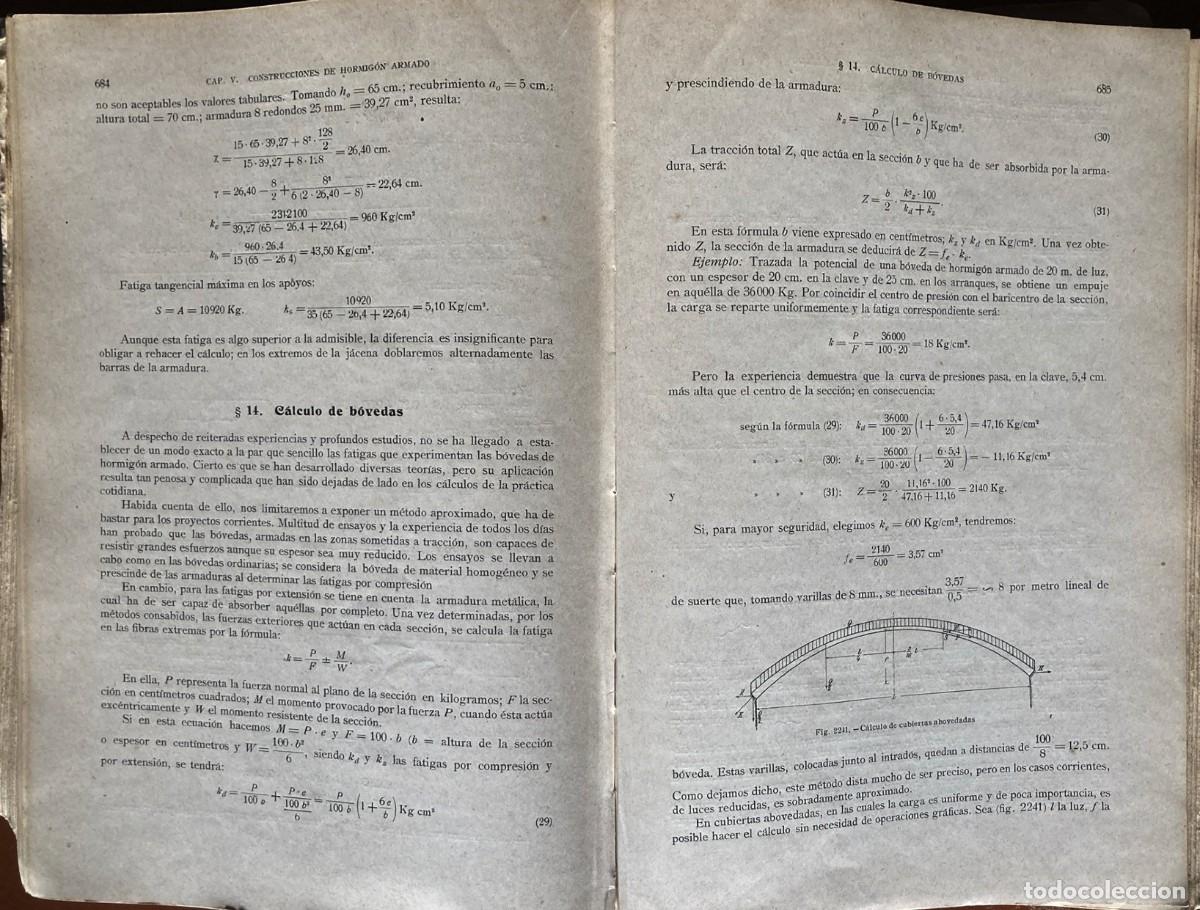 684
CAP. V. CONSTRUCCIONES DE HORMIGÓN ARMADO
no son aceptables los valores tabulares. Tomando h₀ = 65 cm.; recubrimiento a₀ = 5 cm.;
altura total = 70 cm.; armadura 8 redondos 25 mm. = 39,27 cm², resulta:
x = (15·65·39,27 + 8²·128/2) / (15·39,27 + 8·128) = 26,40 cm.
y = 26,40 − 8/2 + 8² / 6 (2·26,40 − 8) = 22,64 cm.
kₑ = 2312100 / 39,27 (65 − 26,4 + 22,64) = 960 Kg/cm²
k_b = 960·26,4 / 15 (65 − 26 4) = 43,50 Kg/cm².
Fatiga tangencial máxima en los apoyos:
S = A = 10920 Kg. kₛ = 10920 / 35 (65 − 26,4 + 22,64) = 5,10 Kg/cm².
Aunque esta fatiga es algo superior a la admisible, la diferencia es insignificante para
obligar a rehacer el cálculo; en los extremos de la jácena doblaremos alternadamente las
barras de la armadura.
§ 14. Cálculo de bóvedas
A despecho de reiteradas experiencias y profundos estudios, no se ha llegado a esta-
blecer de un modo exacto a la par que sencillo las fatigas que experimentan las bóvedas de
hormigón armado. Cierto es que se han desarrollado diversas teorías, pero su aplicación
resulta tan penosa y complicada que han sido dejadas de lado en los cálculos de la práctica
cotidiana.
Habida cuenta de ello, nos limitaremos a exponer un método aproximado, que ha de
bastar para los proyectos corrientes. Multitud de ensayos y la experiencia de todos los días
han probado que las bóvedas, armadas en las zonas sometidas a tracción, son capaces de
resistir grandes esfuerzos aunque su espesor sea muy reducido. Los ensayos se llevan a
cabo como en las bóvedas ordinarias; se considera la bóveda de material homogéneo y se
prescinde de las armaduras al determinar las fatigas por compresión
En cambio, para las fatigas por extensión se tiene en cuenta la armadura metálica, la
cual ha de ser capaz de absorber aquéllas por completo. Una vez determinadas, por los
métodos consabidos, las fuerzas exteriores que actúan en cada sección, se calcula la fatiga
en las fibras extremas por la fórmula:
k = P/F ± M/W.
En ella, P representa la fuerza normal al plano de la sección en kilogramos; F la sec-
ción en centímetros cuadrados; M el momento provocado por la fuerza P, cuando ésta actúa
excéntricamente y W el momento resistente de la sección.
Si en esta ecuación hacemos M = P · e y F = 100 · b (b = altura de la sección
o espesor en centímetros y W = 100·b²/6, siendo k_d y k_z las fatigas por compresión y
por extensión, se tendrá:
k_d = P/100 b + P·e/(100 b²/6) = P/100 b (1 + 6e/b) Kg cm²
(29)
§ 14. CÁLCULO DE BÓVEDAS
685
y prescindiendo de la armadura:
k_z = P/100 b (1 − 6e/b) Kg/cm².
(30)
La tracción total Z, que actúa en la sección b y que ha de ser absorbida por la arma-
dura, será:
Z = b/2 · k²_z·100 / (k_d + k_z).
(31)
En esta fórmula b viene expresado en centímetros; k_z y k_d en Kg/cm². Una vez obte-
nido Z, la sección de la armadura se deducirá de Z = fₑ · kₑ.
Ejemplo: Trazada la potencial de una bóveda de hormigón armado de 20 m. de luz,
con un espesor de 20 cm. en la clave y de 25 cm. en los arranques, se obtiene un empuje
en aquélla de 36000 Kg. Por coincidir el centro de presión con el baricentro de la sección,
la carga se reparte uniformemente y la fatiga correspondiente será:
k = P/F = 36000 / 100·20 = 18 Kg/cm².
Pero la experiencia demuestra que la curva de presiones pasa, en la clave, 5,4 cm.
más alta que el centro de la sección; en consecuencia:
según la fórmula (29): k_d = 36000 / 100·20 (1 + 6·5,4/20) = 47,16 Kg/cm²
» » » (30): k_z = 36000 / 100·20 (1 − 6·5,4/20) = − 11,16 Kg/cm²
y » » » (31): Z = 20/2 · 11,16²·100 / 47,16 + 11,16 = 2140 Kg.
Si, para mayor seguridad, elegimos kₑ = 600 Kg/cm², tendremos:
fₑ = 2140/600 = 3,57 cm²
de suerte que, tomando varillas de 8 mm., se necesitan 3,57/0,5 = ∽ 8 por metro lineal de
Fig. 2241. — Cálculo de cubiertas abovedadas
bóveda. Estas varillas, colocadas junto al intradós, quedan a distancias de 100/8 = 12,5 cm.
Como dejamos dicho, este método dista mucho de ser preciso, pero en los casos corrientes,
de luces reducidas, es sobradamente aproximado.
En cubiertas abovedadas, en las cuales la carga es uniforme y de poca importancia, es
posible hacer el cálculo sin necesidad de operaciones gráficas. Sea (fig. 2241) l la luz, f la
todocoleccion